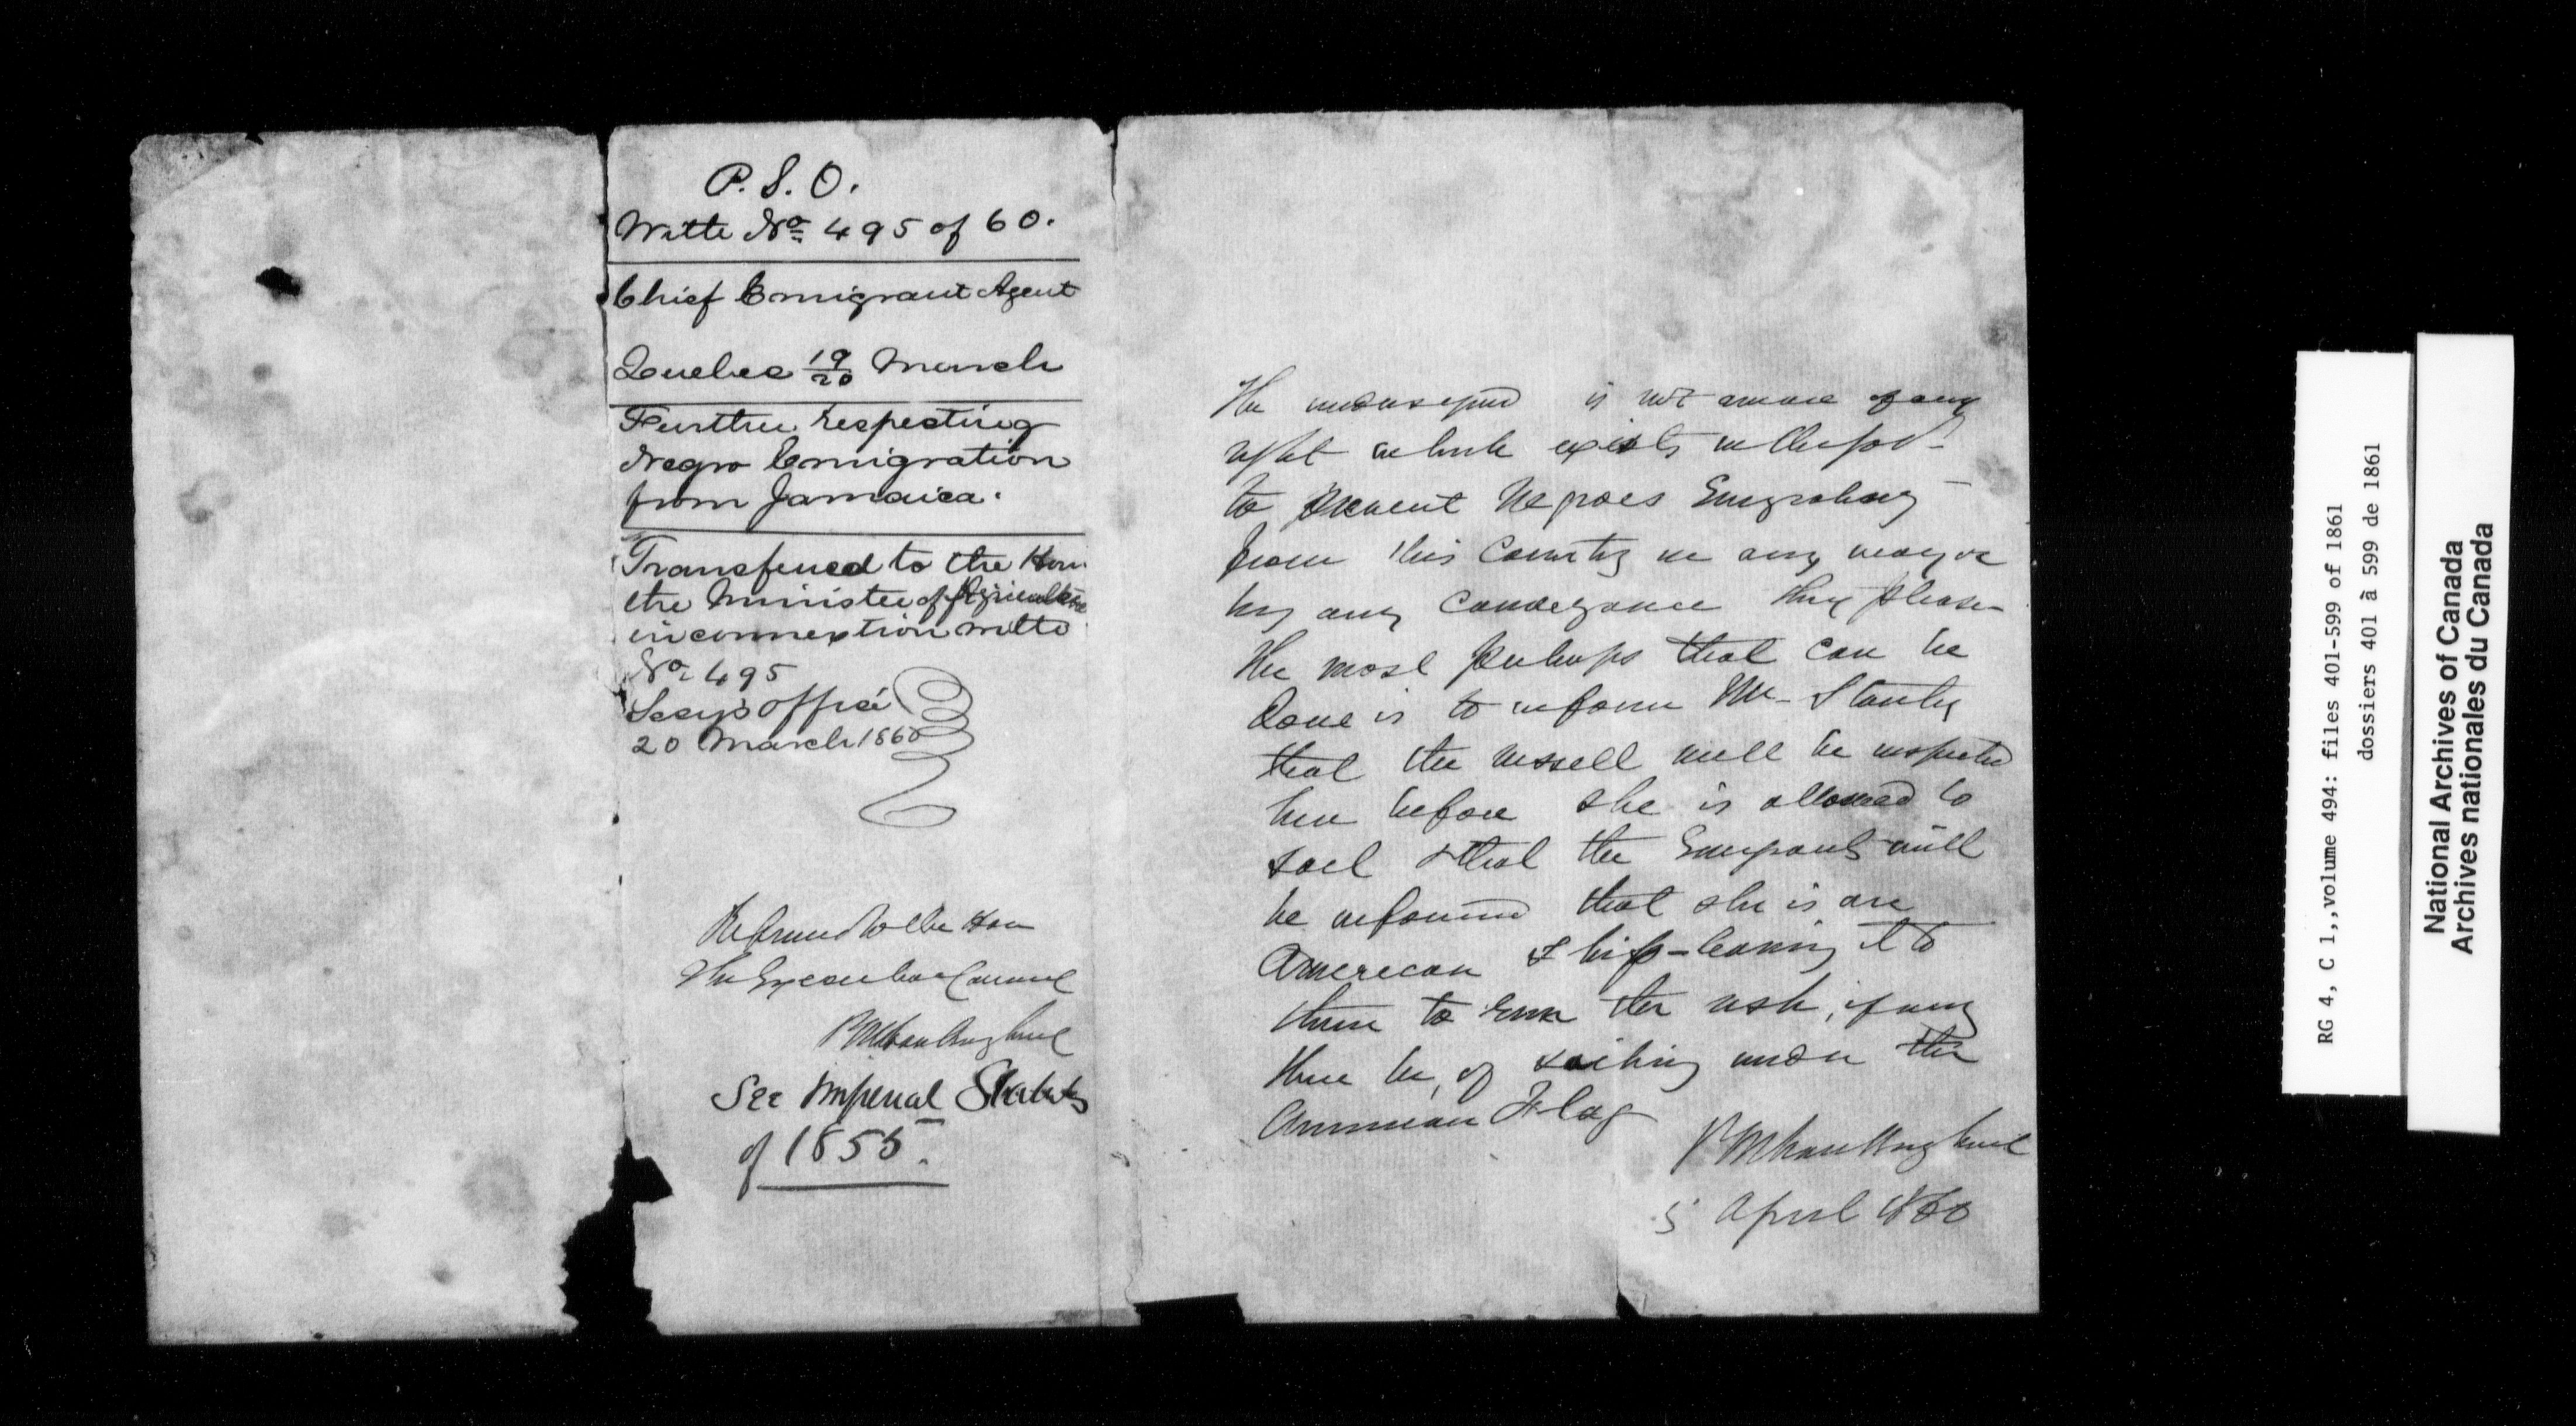 P. S. O.
With No 495 of 60.
Chief Emigrant Agent
Quebec 19/20 March
Further respecting
Negro Emigration
from Jamaica.
Transferred to the Hon.
the Minister of Agriculture
in connextion with
No 495
Secy's Office
20 March 1860
Referred to the Hon
The Executive Council
P M Vankoughnet
See Imperial Statutes
of 1855.
The undersigned is not aware of any
right which exists in the Govt
to prevent Negroes Emigrating
from this Country in any way or
by any conveyance they please
The most perhaps that can be
done is to inform Mr. Stanley
that the vessell will be inspected
here before she is allowed to
sail & that the Emigrants will
be informed that she is an
American Ship - leaving it to
them to run the risk, if any
there be, of sailing under the
American Flag
P M Vankoughnet
5 April 1860
RG 4, C 1,,volume 494: files 401-599 of 1861
dossiers 401 à 599 de 1861
National Archives of Canada
Archives nationales du Canada